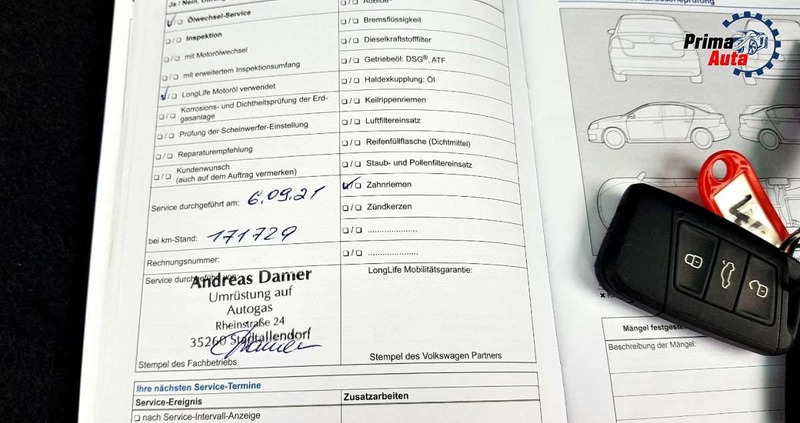 Ja / Nein
Ölwechsel-Service
Inspektion
mit Motorölwechsel
mit erweitertem Inspektionsumfang
LongLife Motoröl verwendet
Korrosions- und Dichtheitsprüfung der Erd-
gasanlage
Prüfung der Scheinwerfer-Einstellung
Reparaturempfehlung
Kundenwunsch
(auch auf dem Auftrag vermerken)
Service durchgeführt am: 6.09.21
bei km-Stand: 171729
Rechnungsnummer:
Service durchgeführt von:
Andreas Damer
Umrüstung auf
Autogas
Rheinstraße 24
35260 Stadtallendorf
Stempel des Fachbetriebs
Bremsflüssigkeit
Dieselkraftstofffilter
Getriebeöl: DSG®, ATF
Haldexkupplung: Öl
Keilrippenriemen
Luftfiltereinsatz
Reifenfüllflasche (Dichtmittel)
Staub- und Pollenfiltereinsatz
Zahnriemen
Zündkerzen
LongLife Mobilitätsgarantie:
Stempel des Volkswagen Partners
Ihre nächsten Service-Termine
Service-Ereignis
Zusatzarbeiten
nach Service-Intervall-Anzeige
Prima
Auta
Mängel festgeste
Beschreibung der Mängel: